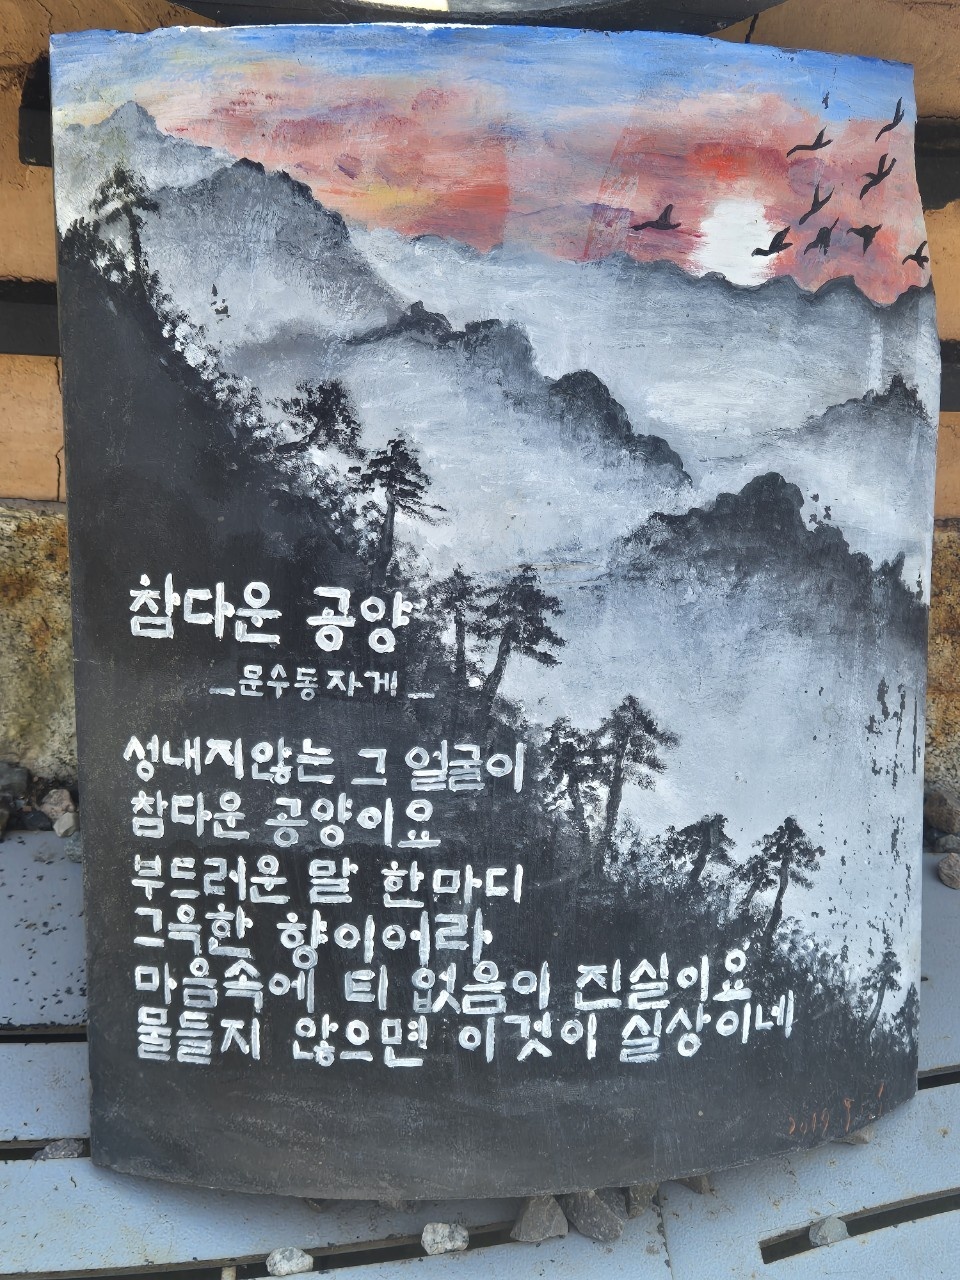 참다운 공양
_문수동자게_
성내지않는 그 얼굴이
참다운 공양이요
부드러운 말 한마디
그윽한 향이어라
마음속에 티 없음이 진실이요
물들지 않으면 이것이 실상이네
2019